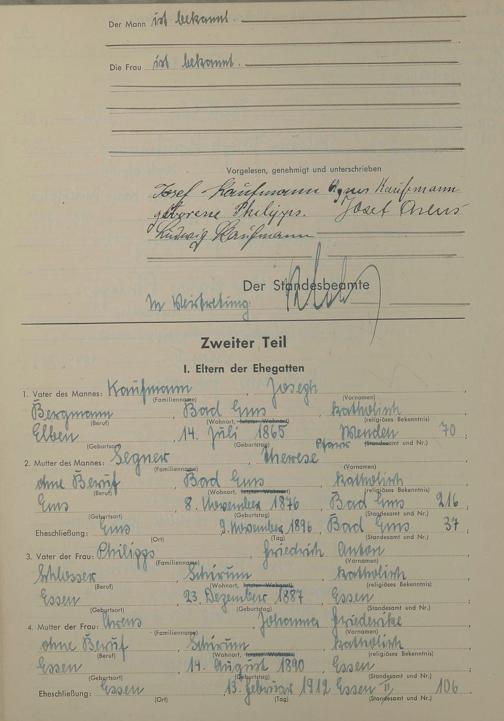 Der Mann ist bekannt.
Die Frau ist bekannt.
Vorgelesen, genehmigt und unterschrieben
Josef Kaufmann Agnes Kaufmann
geborene Philipps. Josef Arens
Ludwig Kaufmann
Der Standesbeamte
In Vertretung
Zweiter Teil
I. Eltern der Ehegatten
1. Vater des Mannes: Kaufmann Joseph
(Familienname) (Vornamen)
Bergmann, Bad Ems, katholisch
(Beruf) (Wohnort, letzter Wohnort) (religiöses Bekenntnis)
Elben, 14. Juli 1865, Pfarr Wenden 70
(Geburtsort) (Geburtstag) (Standesamt und Nr.)
2. Mutter des Mannes: Segner Therese
(Familienname) (Vornamen)
ohne Beruf, Bad Ems, katholisch
(Beruf) (Wohnort, letzter Wohnort) (religiöses Bekenntnis)
Ems, 8. November 1876, Bad Ems 216
(Geburtsort) (Geburtstag) (Standesamt und Nr.)
Eheschließung: Ems 9. November 1896, Bad Ems 37
(Ort) (Tag) (Standesamt und Nr.)
3. Vater der Frau: Philipps Friedrich Anton
(Familienname) (Vornamen)
Schlosser, Schirum, katholisch
(Beruf) (Wohnort, letzter Wohnort) (religiöses Bekenntnis)
Essen, 23. Dezember 1887, Essen
(Geburtsort) (Geburtstag) (Standesamt und Nr.)
4. Mutter der Frau: Arens Johanna Friederike
(Familienname) (Vornamen)
ohne Beruf, Schirum, katholisch
(Beruf) (Wohnort, letzter Wohnort) (religiöses Bekenntnis)
Essen, 14. August 1890, Essen
(Geburtsort) (Geburtstag) (Standesamt und Nr.)
Eheschließung: Essen 13. Februar 1912 Essen II 106
(Ort) (Tag) (Standesamt und Nr.)